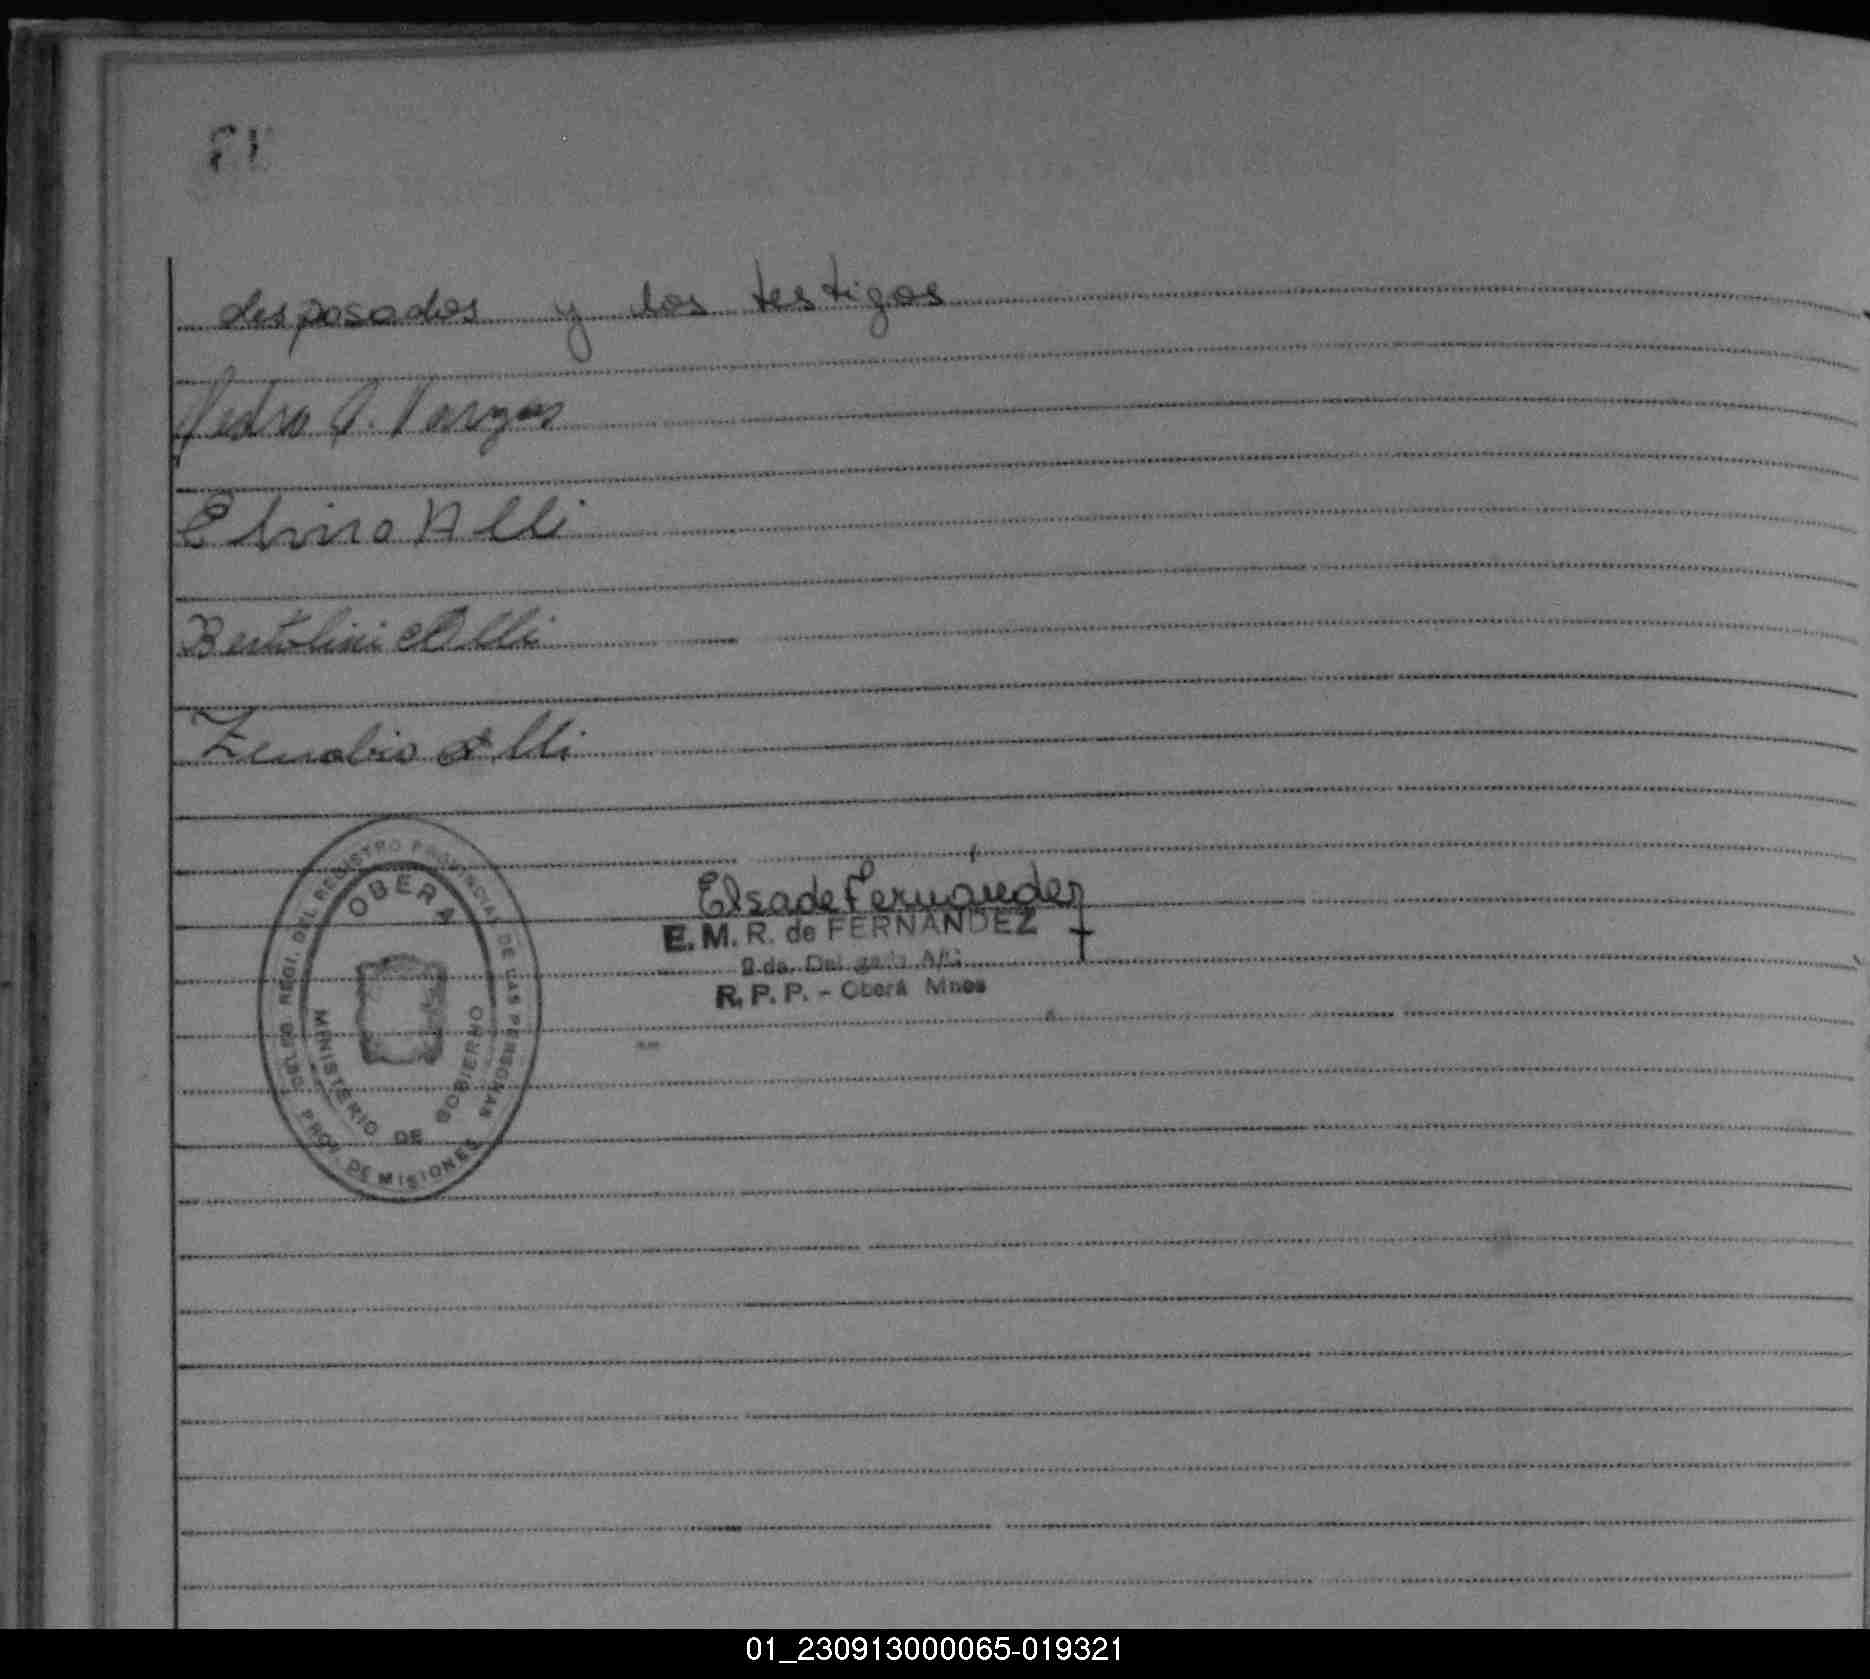 desposados y los testigos
Pedro A. Vargas
Elvira Alli
Bertolini Alli
Zenobio Alli
OBERA
DELEG. REGI. DEL REGISTRO PROVINCIAL DE LAS PERSONAS
MINISTERIO DE GOBIERNO
PROV. DE MISIONES
Elsa de Fernández
E. M. R. de FERNANDEZ
R. P. P. - Oberá Mnes
01_230913000065-019321